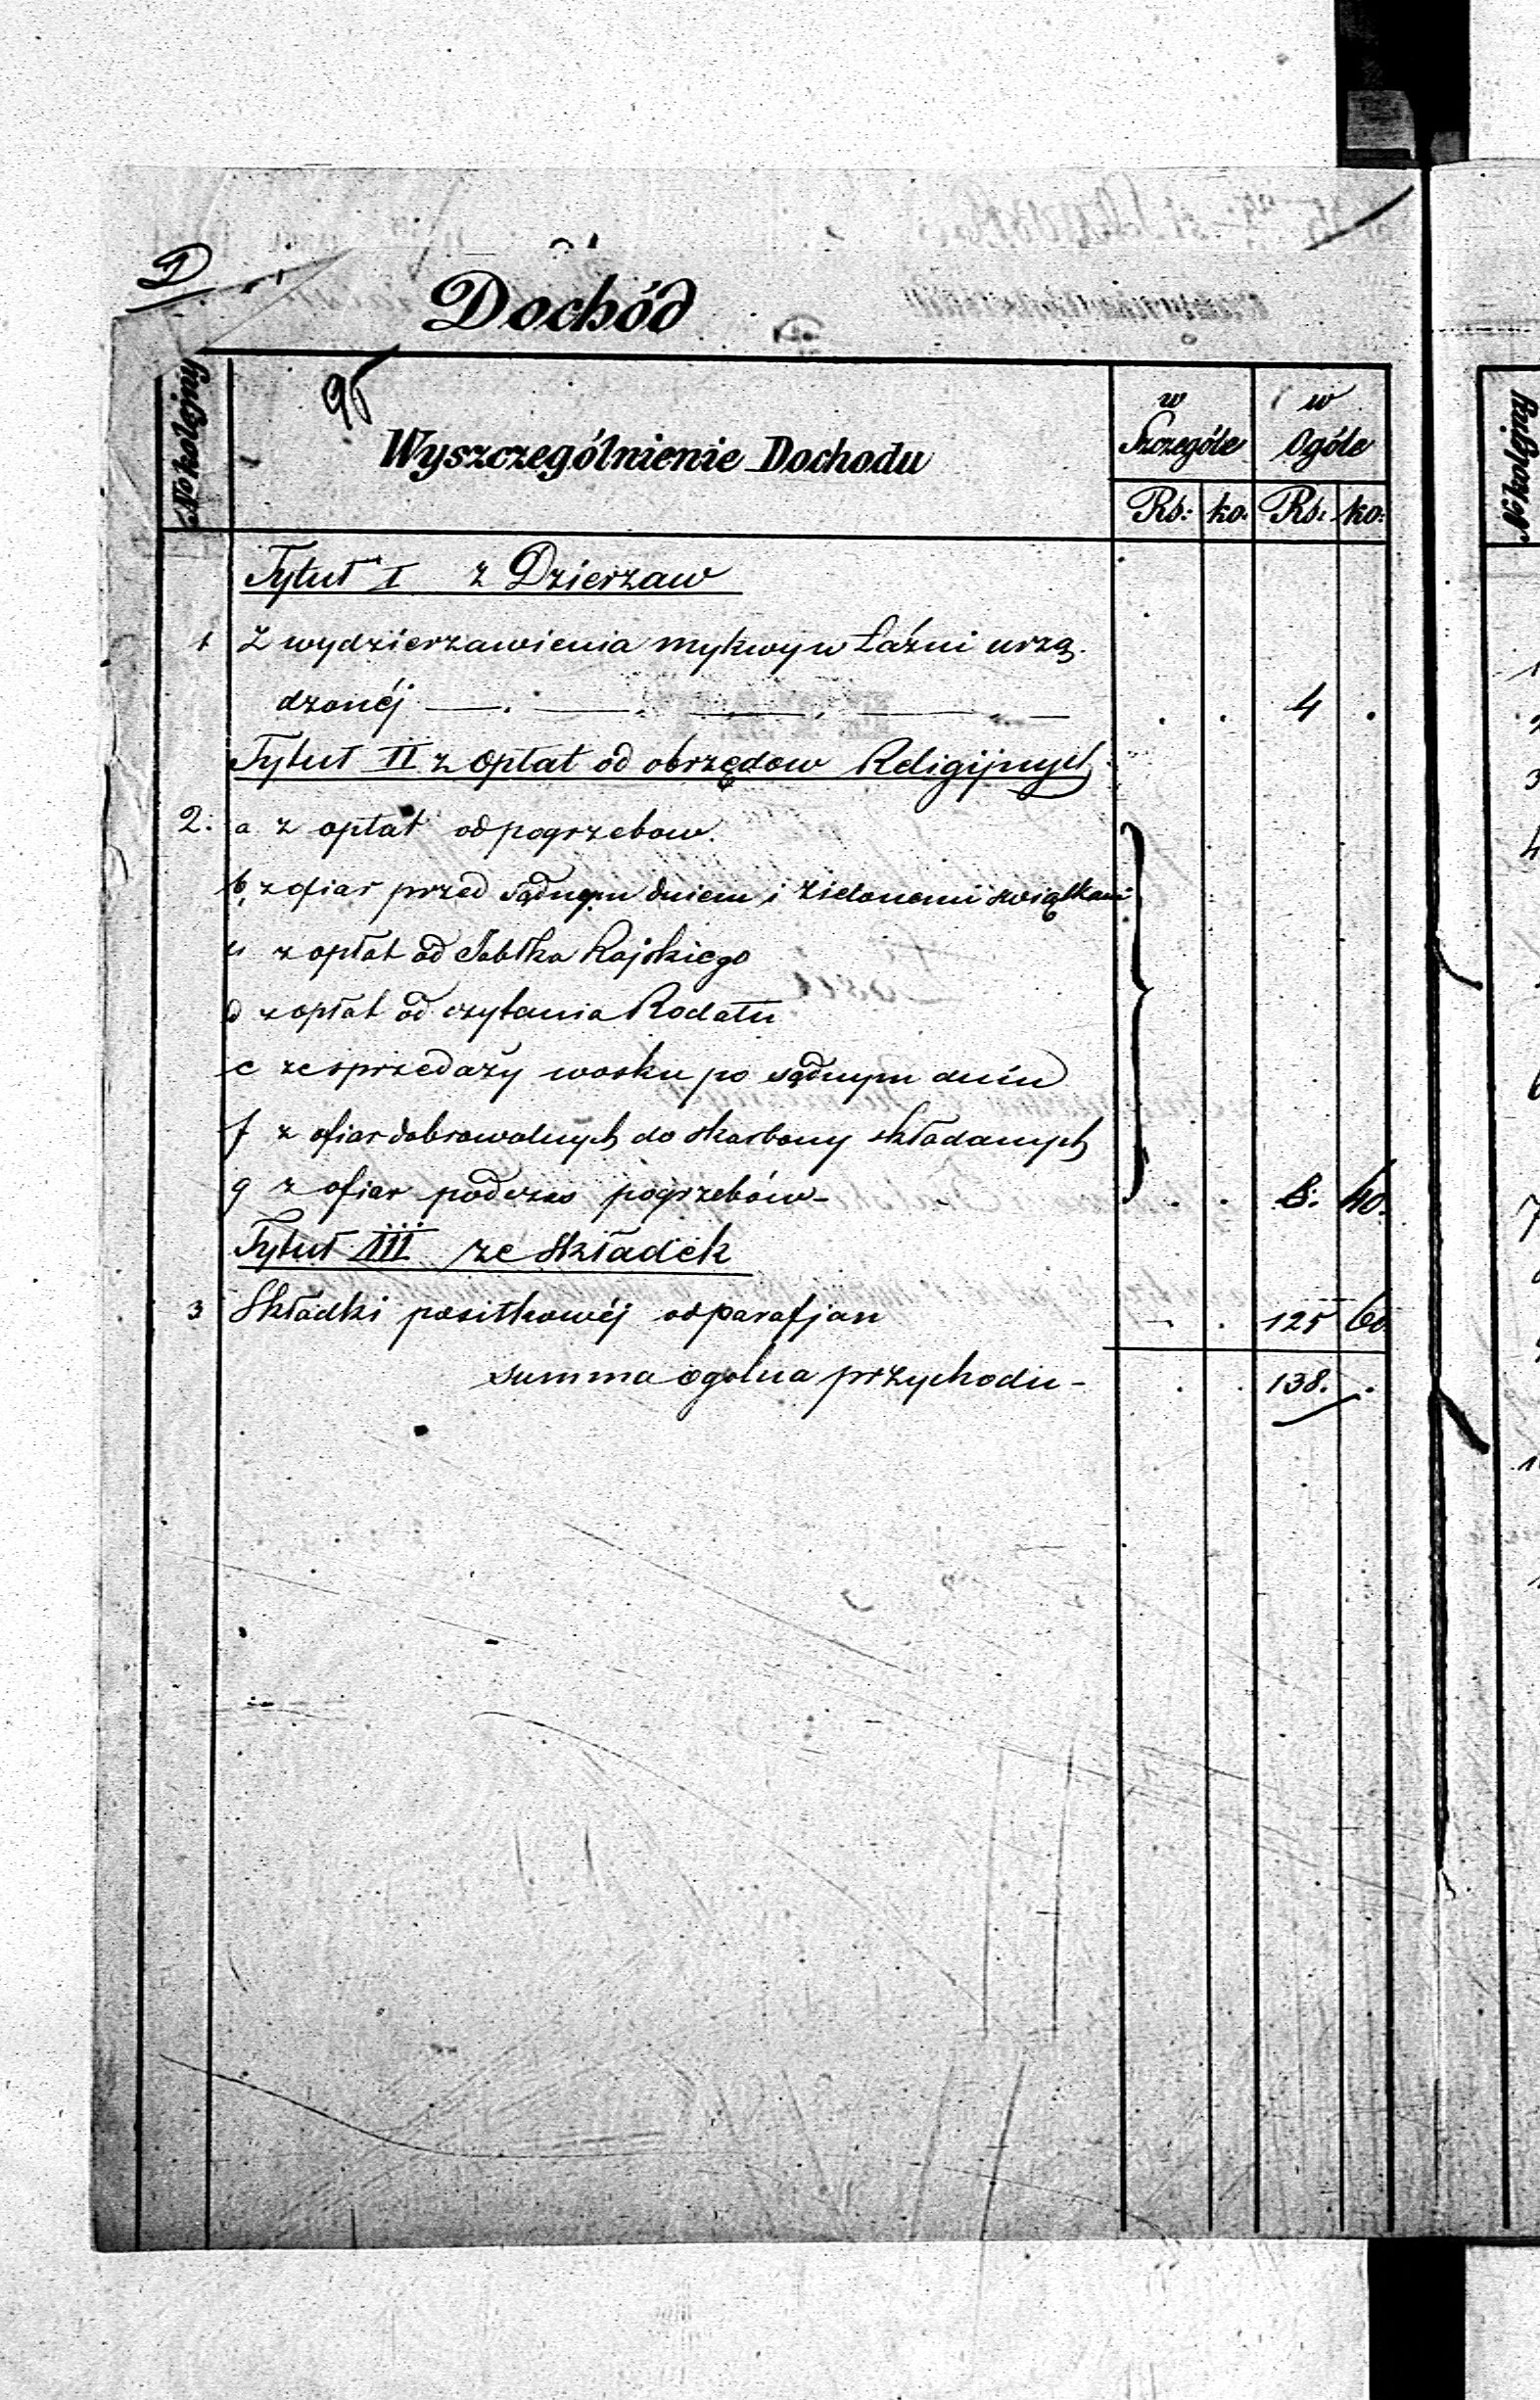 D
Dochód
95
№ kolejny
Wyszczególnienie Dochodu
w Szczególe
w Ogóle
Rs: ko: Rs: ko:
Tytuł I z Dzierzaw
1 Z wydzierzawienia mykwy w Łaźni urzą-
dzonéj . . 4 .
Tytuł II z opłat od obrzędow Religijnych
2. a z opłat od pogrzebow.
b, z ofiar przed sądnym dniem i zielonemi swiątkami
c z opłat od Jabłka Rajskiego
d z opłat od czytania Rodału
e ze sprzedaży wosku po sądnym dniu
f z ofiar dobrowolnych do skarbony składanych
g z ofiar podczas pogrzebów - . . 8. 40.
Tytuł III ze Składek
3 Składki posiłkowéj od parafjan - . 125 60
summa ogolna przychodu - . . 138. .
№ kolejny